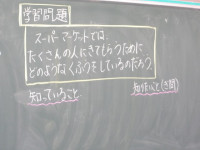 学習問題
スーパーマーケットでは、
たくさんの人にきてもらうために
どのようなくふうをしているのだろう
知っていること
知りたいこと(疑問)